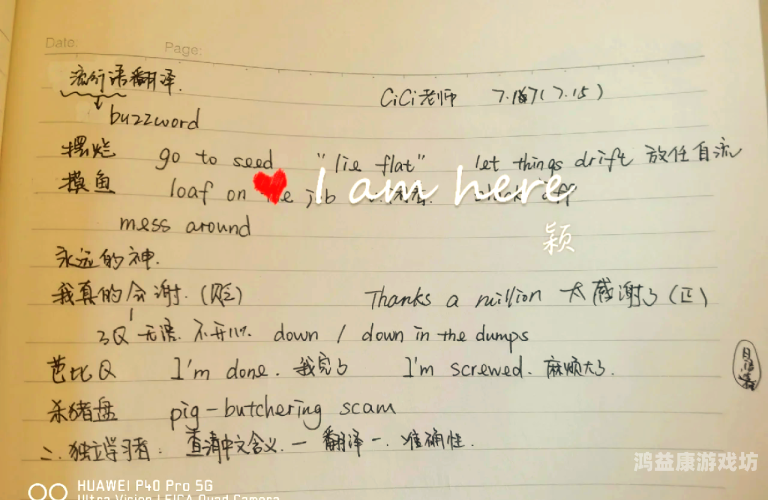 Date: Page:
流行语翻译. CiCi老师 7.
buzzword
摆烂 go to seed "lie flat" let things drift 放任自流
摸鱼 loaf on the job
❤ I am here
颖
mess around
永远的神.
我真的会谢. (贬) Thanks a million 太感谢了(正)
3Q 无语. 不开心. down / down in the dumps
芭比Q I'm done. 我完了 I'm screwed. 麻烦大了.
杀猪盘 pig-butchering scam
二. 独立学习者: 查清中文含义. — 翻译 — 准确性.
鸿益康游戏坊
HUAWEI P40 Pro 5G
Ultra Vision LEICA Quad Camera